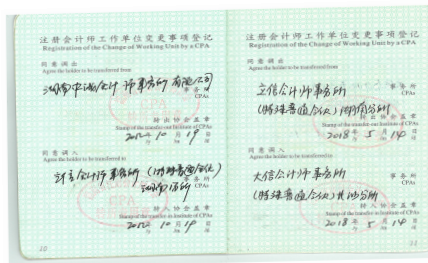 注册会计师工作单位变更事项登记
Registration of the Change of Working Unit by a CPA
同意调出
Agree the holder to be transferred from
事务所
CPAs
转出协会盖章
Stamp of the transfer-out Institute of CPAs
10月19日
同意调入
Agree the holder to be transferred to
会计师事务所(特殊普通合伙)
事务所
CPAs
转入协会盖章
Stamp of the transfer-in Institute of CPAs
10月19日
10
注册会计师工作单位变更事项登记
Registration of the Change of Working Unit by a CPA
同意调出
Agree the holder to be transferred from
立信会计师事务所
事务所
CPAs
(特殊普通合伙)湖南分所
转出协会盖章
Stamp of the transfer-out Institute of CPAs
2018年5月14日
同意调入
Agree the holder to be transferred to
大信会计师事务所
事务所
CPAs
(特殊普通合伙)长沙分所
转入协会盖章
Stamp of the transfer-in Institute of CPAs
2018年5月14日
11